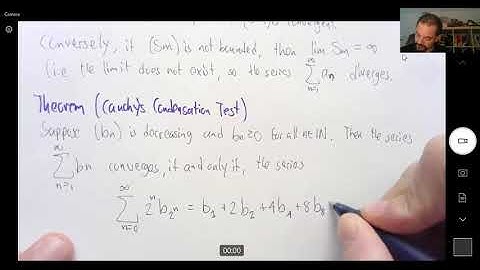 Camera
convergent.
Conversely, if (Sm) is not bounded, then lim Sm = ∞
(i.e. the limit does not exist, so the series ∞∑n=1 an diverges.
Theorem (Cauchy's Condensation Test)
Suppose (bn) is decreasing and bn≥0 for all n∈ℕ. Then the series
∞∑n=1 bn converges, if and only if, the series
∞∑n=0 2ⁿ b2ⁿ = b1 + 2b2 + 4b4 + 8b8
00:00